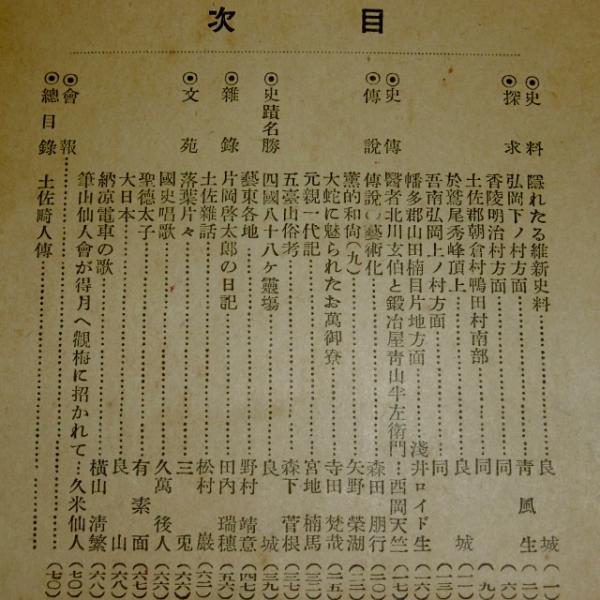 目次
◉史料 隱れたる維新史料……良城(一)
◉探求 弘岡下ノ村方面……靑風生(二)
香陵明治村方面……同(六)
土佐郡朝倉村鴨田村南部……同(九)
於鷲尾秀峰頂上……良城(一一)
吾南弘岡上ノ村方面……同(一三)
幡多郡山田楠目片地方面……淺井ロイド生(一六)
◉史傳 醫者北川玄伯と鍛冶屋靑山半左衛門…西岡天竺(一七)
◉傳說 傳說の藝術化……森田朋行(二〇)
薰的和尙(九)……矢野榮湖(二二)
大蛇に魅られたお萬御寮……寺田梵哉(二五)
元親一代記……宮地楠馬(三二)
五臺山俗考……森下菅根(三七)
◉史蹟名勝 四國八十八ケ靈塲……良城(三九)
藝東各地……野村靖意(四七)
◉雜錄 片岡啓太郎の日記……田內瑞穗(五六)
土佐雜話……松村巖(六二)
◉文苑 落葉片々……三兎
國史唱歌……久萬後人(六六)
聖德太子……有素面(六七)
大日本……良山(六八)
納凉電車の歌……橫山淸繁(六八)
◉會報……筆山仙人會が得月へ觀梅に招かれて…久米仙人(七〇)
◉總目錄 土佐畸人傳……(七〇)